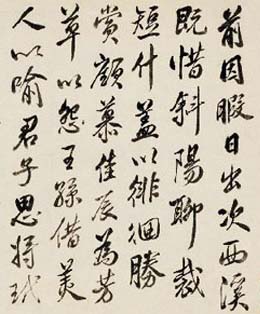 前因暇日出次西溪
既惜斜陽聊裁
短什蓋以徘徊勝
賞顧慕佳辰為芳
草以怨王孫借美
人以喻君子思將玳